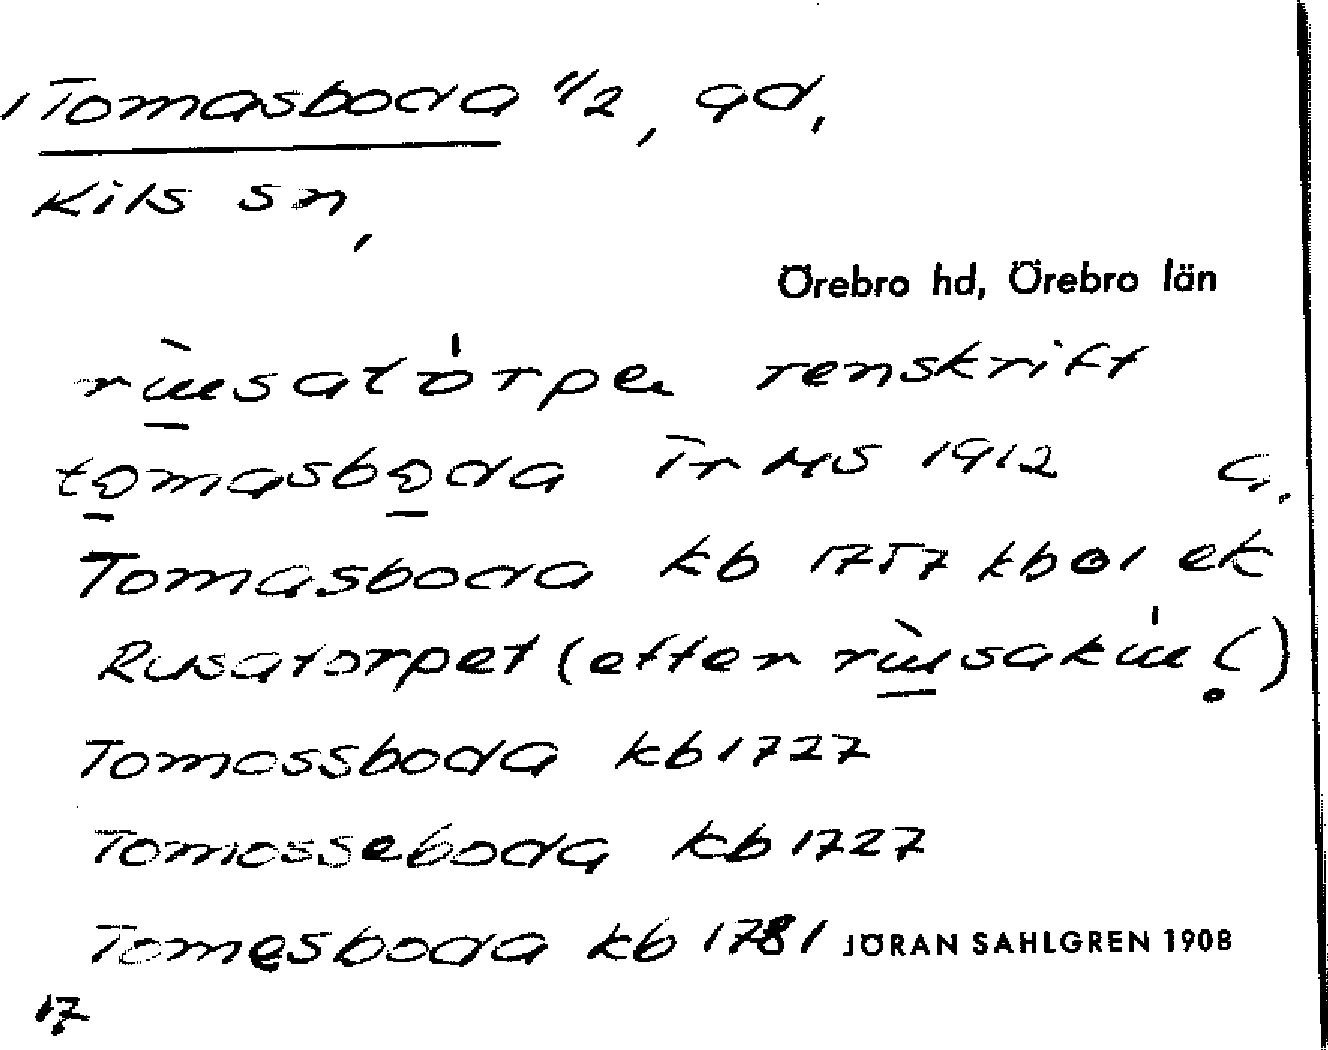 Tomasboda 1/2, gd,
Kils sn,
Örebro hd, Örebro län
renskrift
tomasboda Tr MS 1912 G.
Tomasboda kb 1757 kb 01 ek
Rusatorpet (efter
Tomossboda kb 1727
Tomosseboda kb 1727
Tomesboda kb 1781 JÖRAN SAHLGREN 1908
17